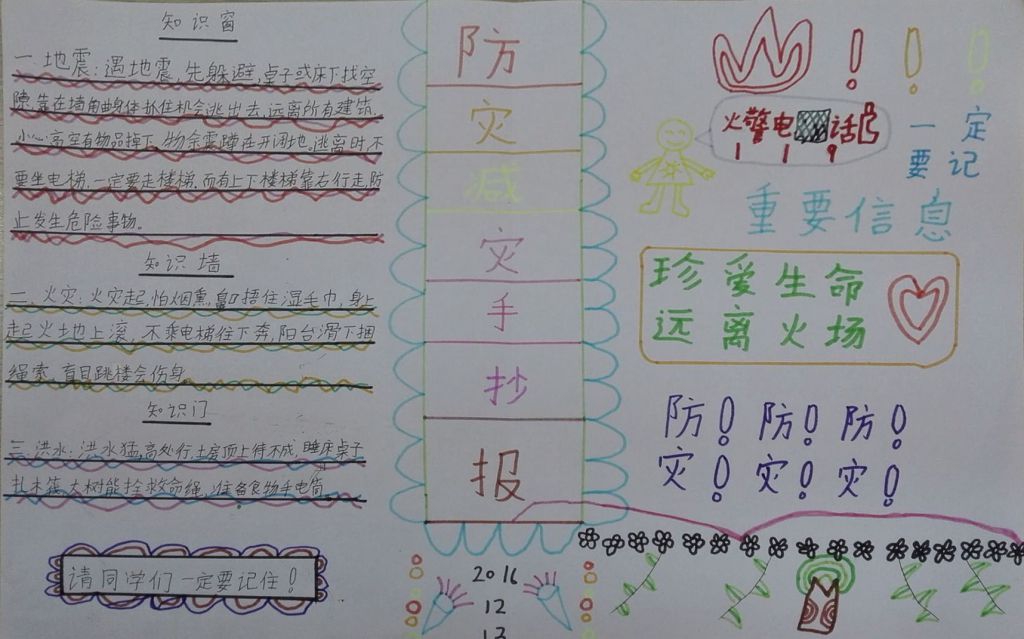 知识窗
一.地震:遇地震,先躲避,桌子或床下找空
隙,靠在墙角曲身体,抓住机会逃出去,远离所有建筑,
小心高空有物品掉下,物余震蹲在开阔地。逃离时,不
要坐电梯,一定要走楼梯,而有上下楼梯靠右行走,防
止发生危险事物。
知识墙
二.火灾:火灾起,怕烟熏,鼻口捂住湿毛巾,身上
起火地上滚,不乘电梯往下奔,阳台滑下捆
绳索,盲目跳楼会伤身。
知识门
三.洪水:洪水猛,高处行,土房顶上待不成,睡床桌子
扎木筏,大树能拴救命绳,准备食物手电筒,
请同学们一定要记住!
防
灾
减
灾
手
抄
报
2016
12
13
!!!
火警电话
119
一定
要记
重要信息
珍爱生命
远离火场
防!防!防!
灾!灾!灾!